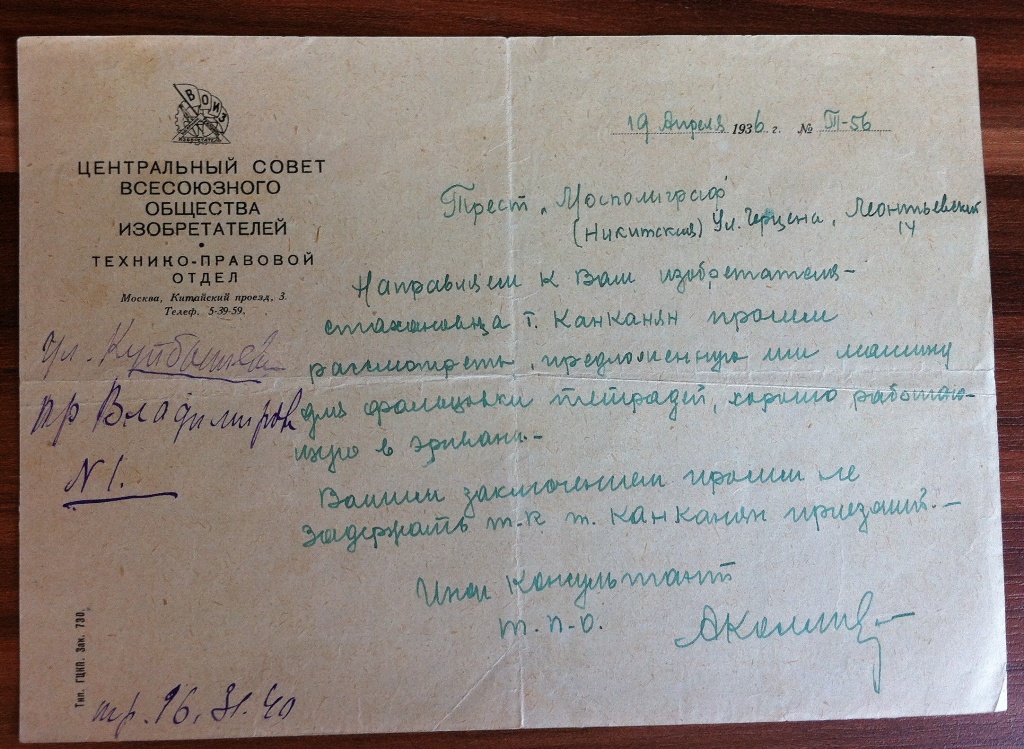 ВОИЗ
ЦЕНТРАЛЬНЫЙ СОВЕТ
ВСЕСОЮЗНОГО
ОБЩЕСТВА
ИЗОБРЕТАТЕЛЕЙ
•
ТЕХНИКО-ПРАВОВОЙ
ОТДЕЛ
Москва, Китайский проезд, 3.
Телеф. 5-39-59.
19 Апреля 1936 г. № Т-56
Трест „Мосполиграф"
(Никитская) Ул. Герцена, Леонтьевский
14
Направляем к Вам изобретателя-
стахановца т. Канканян просим
рассмотреть, предложенную им машину
для фальцовки тетрадей, хорошо работаю-
щую в Эривани.-
Вашим заключением просим не
задержать т.к т. Канканян приезжий.-
Инж Консультант
Т.П.О.
ул. Куйбышева
пр Владимиров
N 1.
Тип. ГЦКП. Зак. 730.
16.31.40